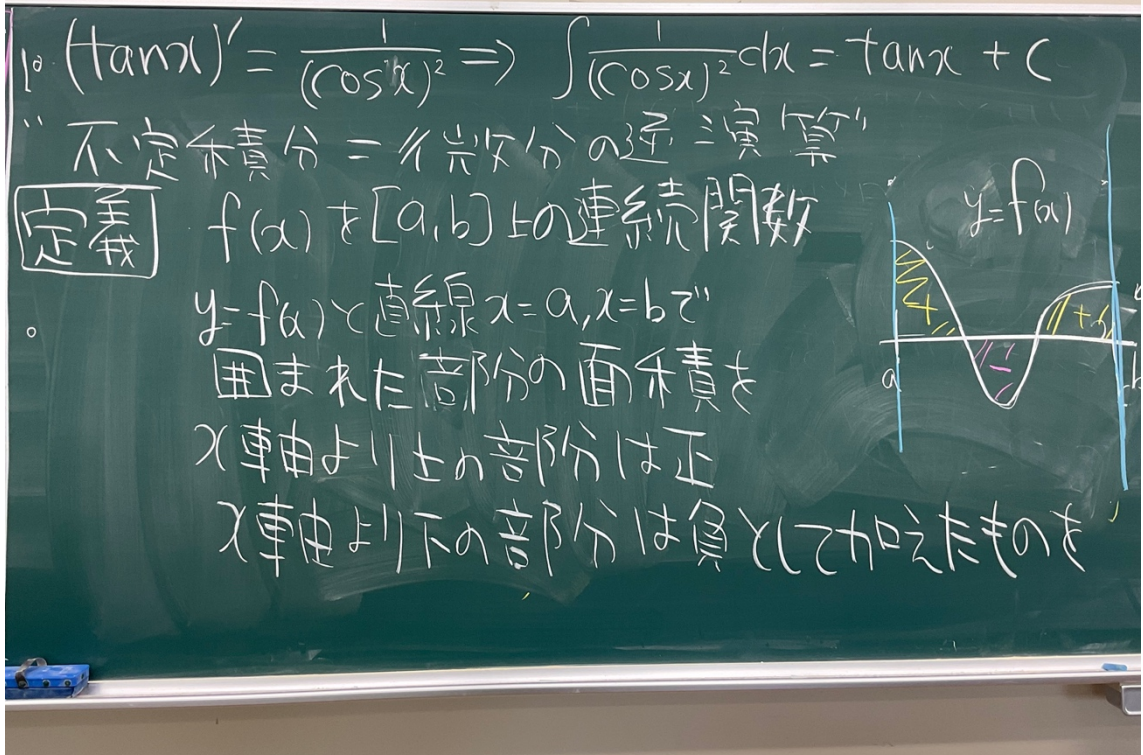 (tanx)' = 1/(cosx)² ⇒ ∫ 1/(cosx)² dx = tanx + C
"不定積分 = "微分の逆演算"
定義 f(x)を[a,b]上の連続関数
y=f(x)と直線x=a,x=bで
囲まれた部分の面積を
x軸より上の部分は正
x軸より下の部分は負として加えたものを
y=f(x)
+
−
+
a
b